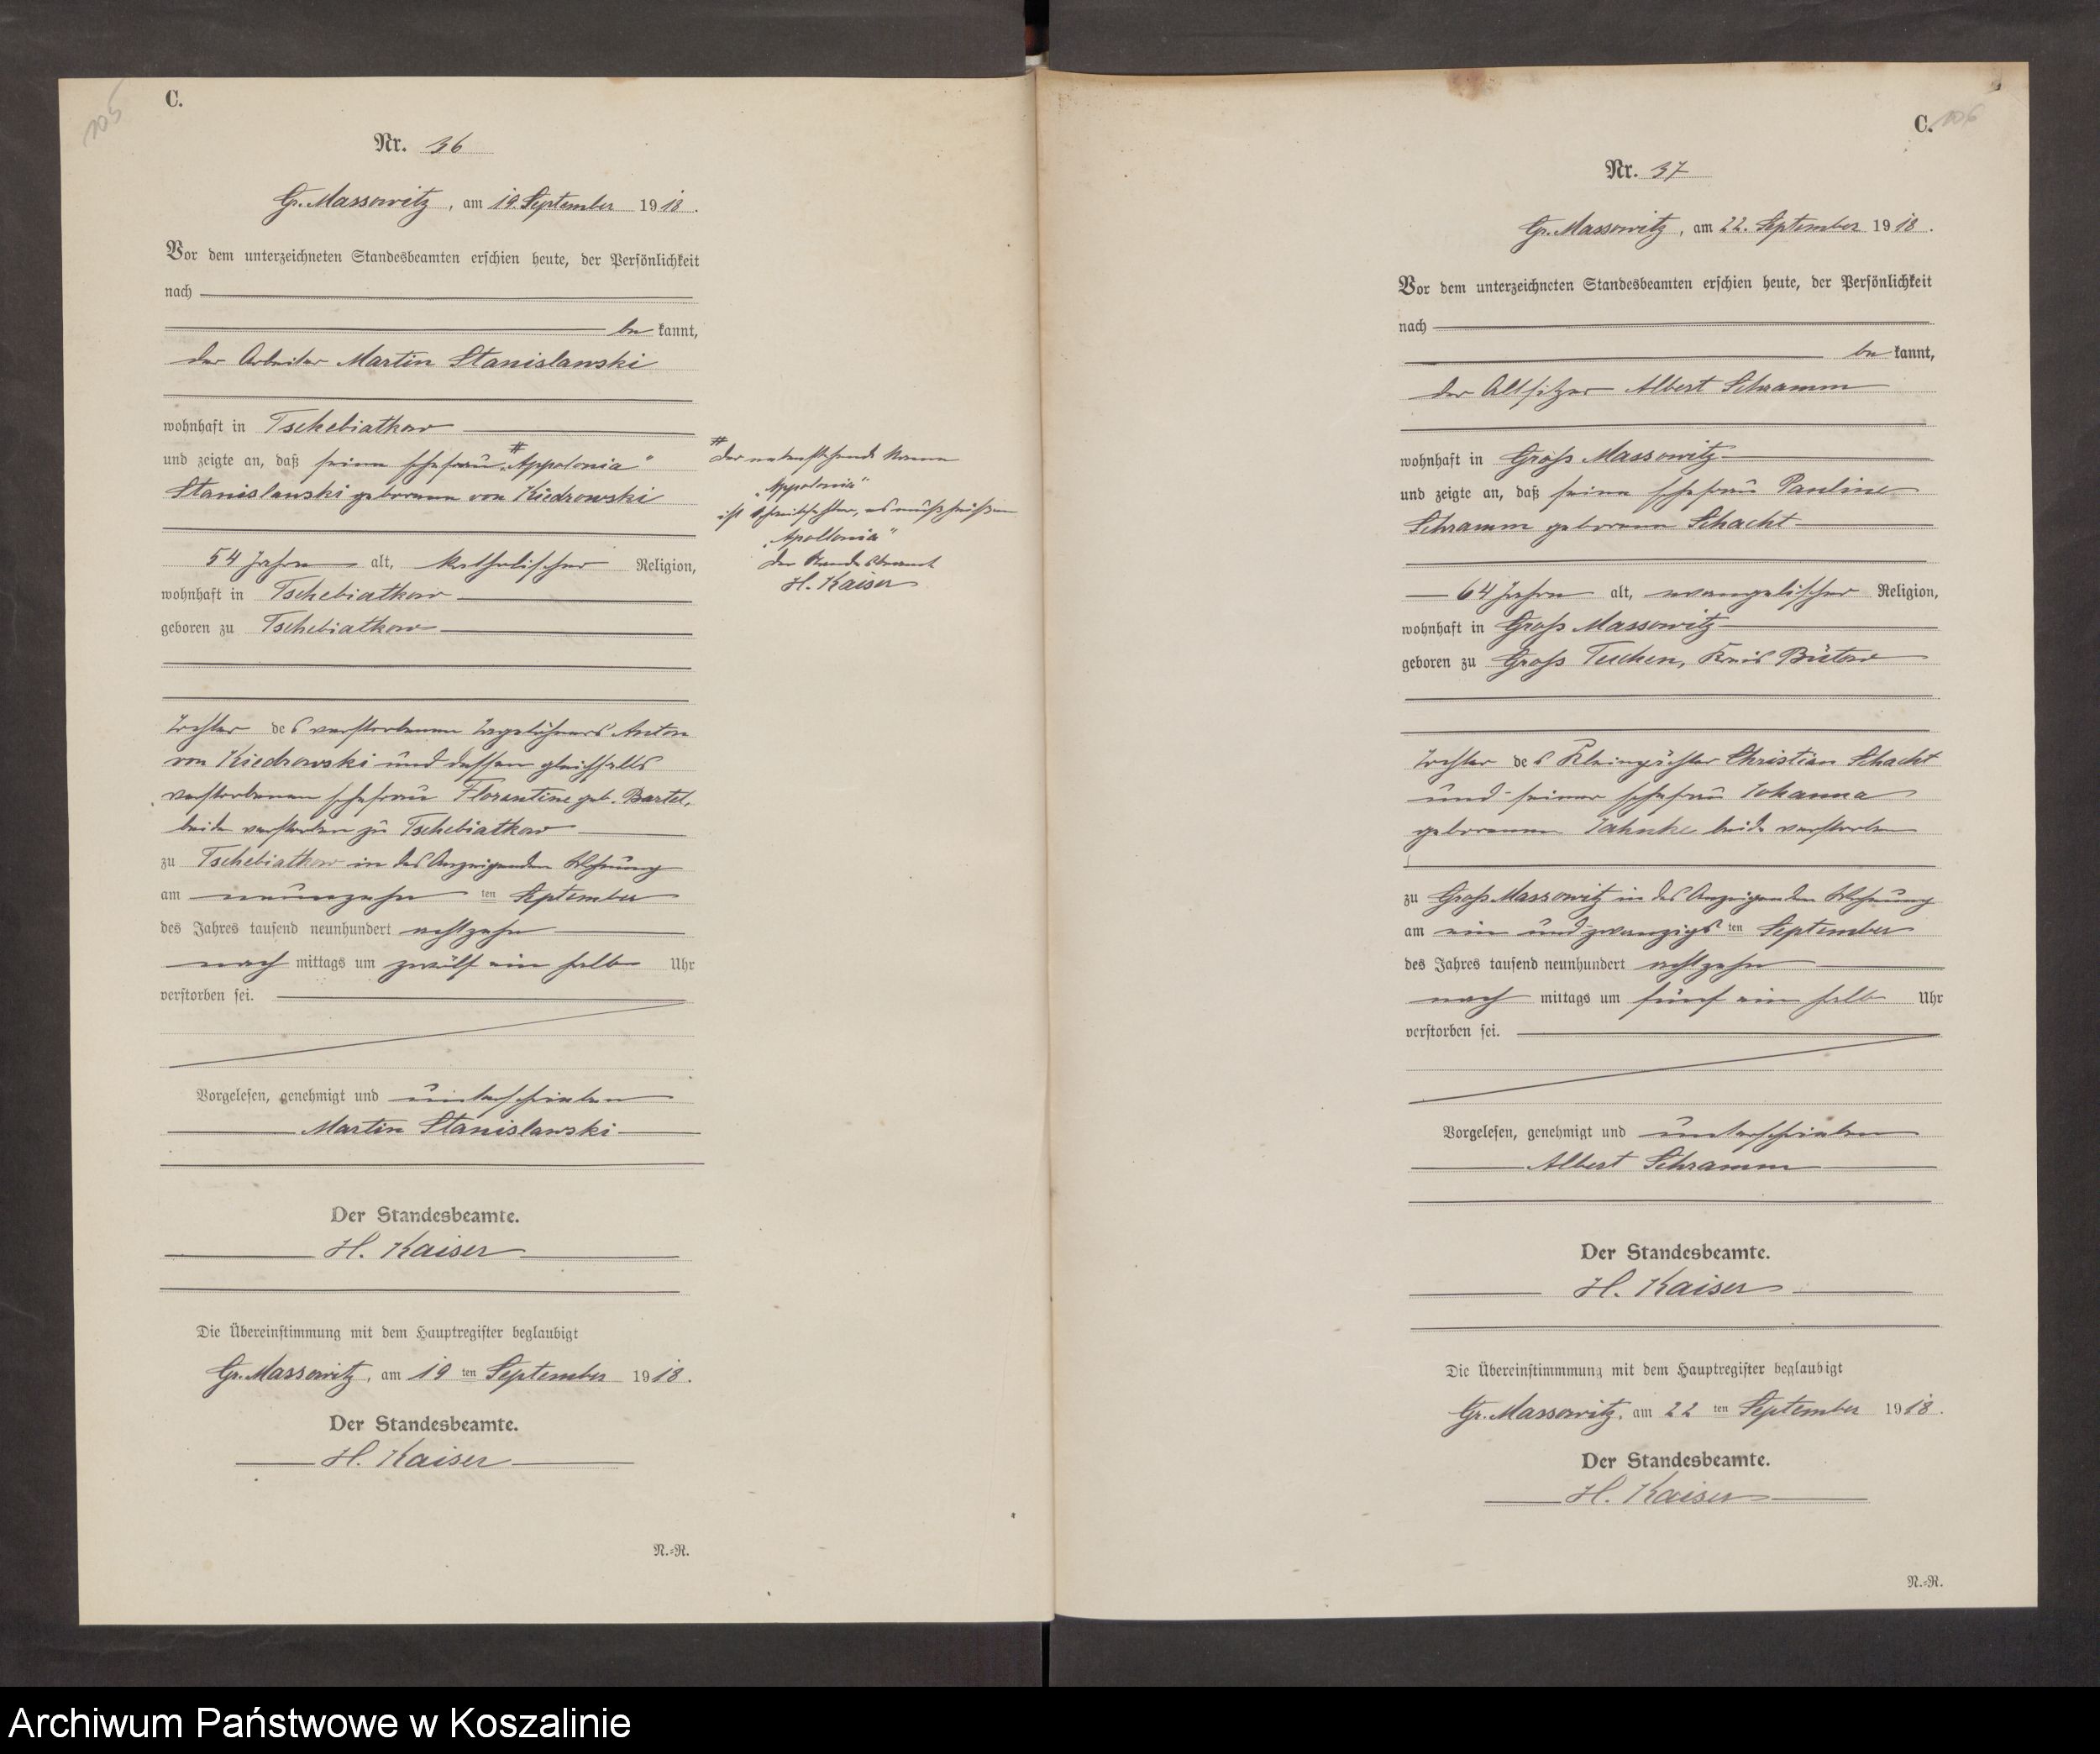 105
C.
Nr. 36
Gr. Massowitz, am 19. September 1918.
Vor dem unterzeichneten Standesbeamten erschien heute, der Persönlichkeit
nach
be kannt,
der Arbeiter Martin Stanislawski
wohnhaft in Tschebiatkow
und zeigte an, daß seine Ehefrau # „Appolonia“
Stanislawski geborene von Kiedrowski
54 Jahre alt, katholischer Religion,
wohnhaft in Tschebiatkow
geboren zu Tschebiatkow
Tochter des verstorbenen Tagelöhners Anton
von Kiedrowski und dessen gleichfalls
verstorbenen Ehefrau Florentine geb. Bartel,
beide verstorben zu Tschebiatkow
zu Tschebiatkow in des Anzeigenden Wohnung
am neunzehn ten September
des Jahres tausend neunhundert achtzehn
nach mittags um zwölf ein halb Uhr
verstorben sei.
Vorgelesen, genehmigt und unterschrieben
Martin Stanislawski
Der Standesbeamte.
H. Kaiser
Die Übereinstimmung mit dem Hauptregister beglaubigt
Gr. Massowitz, am 19 ten September 1918.
Der Standesbeamte.
H. Kaiser
N.=R.
#
der nebenstehende Name
„Appolonia“
ist Schreibfehler, es muß heißen
„Apollonia“
Der Standesbeamte
H. Kaiser
C. 106
Nr. 37
Gr. Massowitz, am 22. September 1918.
Vor dem unterzeichneten Standesbeamten erschien heute, der Persönlichkeit
nach
be kannt,
der Altsitzer Albert Schramm
wohnhaft in Groß Massowitz
und zeigte an, daß seine Ehefrau Pauline
Schramm geborene Schacht
64 Jahre alt, evangelischer Religion,
wohnhaft in Groß Massowitz
geboren zu Groß Tuchen, Kreis Bütow
Tochter des Kleinpächter Christian Schacht
und seiner Ehefrau Johanna
geborenen Jahnke beide verstorben
zu Groß Massowitz in des Anzeigenden Wohnung
am ein und zwanzigs ten September
des Jahres tausend neunhundert achtzehn
nach mittags um fünf ein halb Uhr
verstorben sei.
Vorgelesen, genehmigt und unterschrieben
Albert Schramm
Der Standesbeamte.
H. Kaiser
Die Übereinstimmung mit dem Hauptregister beglaubigt
Gr. Massowitz, am 22 ten September 1918.
Der Standesbeamte.
H. Kaiser
N.=R.
Archiwum Państwowe w Koszalinie